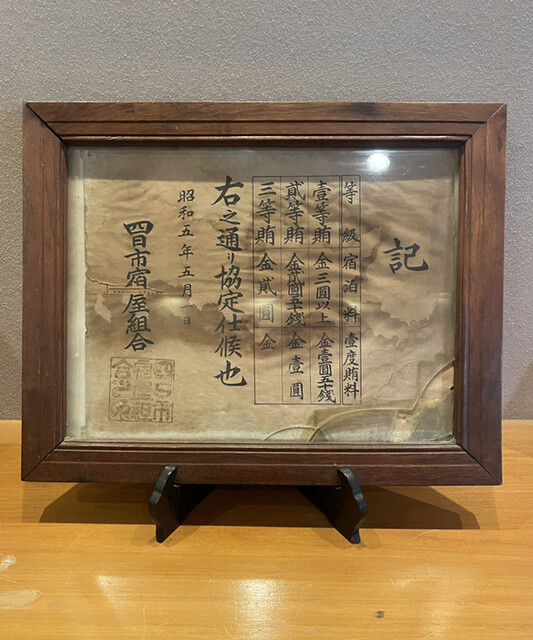 記
等級 宿泊料 壹度賄料
壹等賄 金三圓以上 金壹圓五十錢
貳等賄 金貳圓五十錢 金壹圓
三等賄 金貳圓 金
右之通り協定仕候也
昭和五年五月一日
四日市宿屋組合